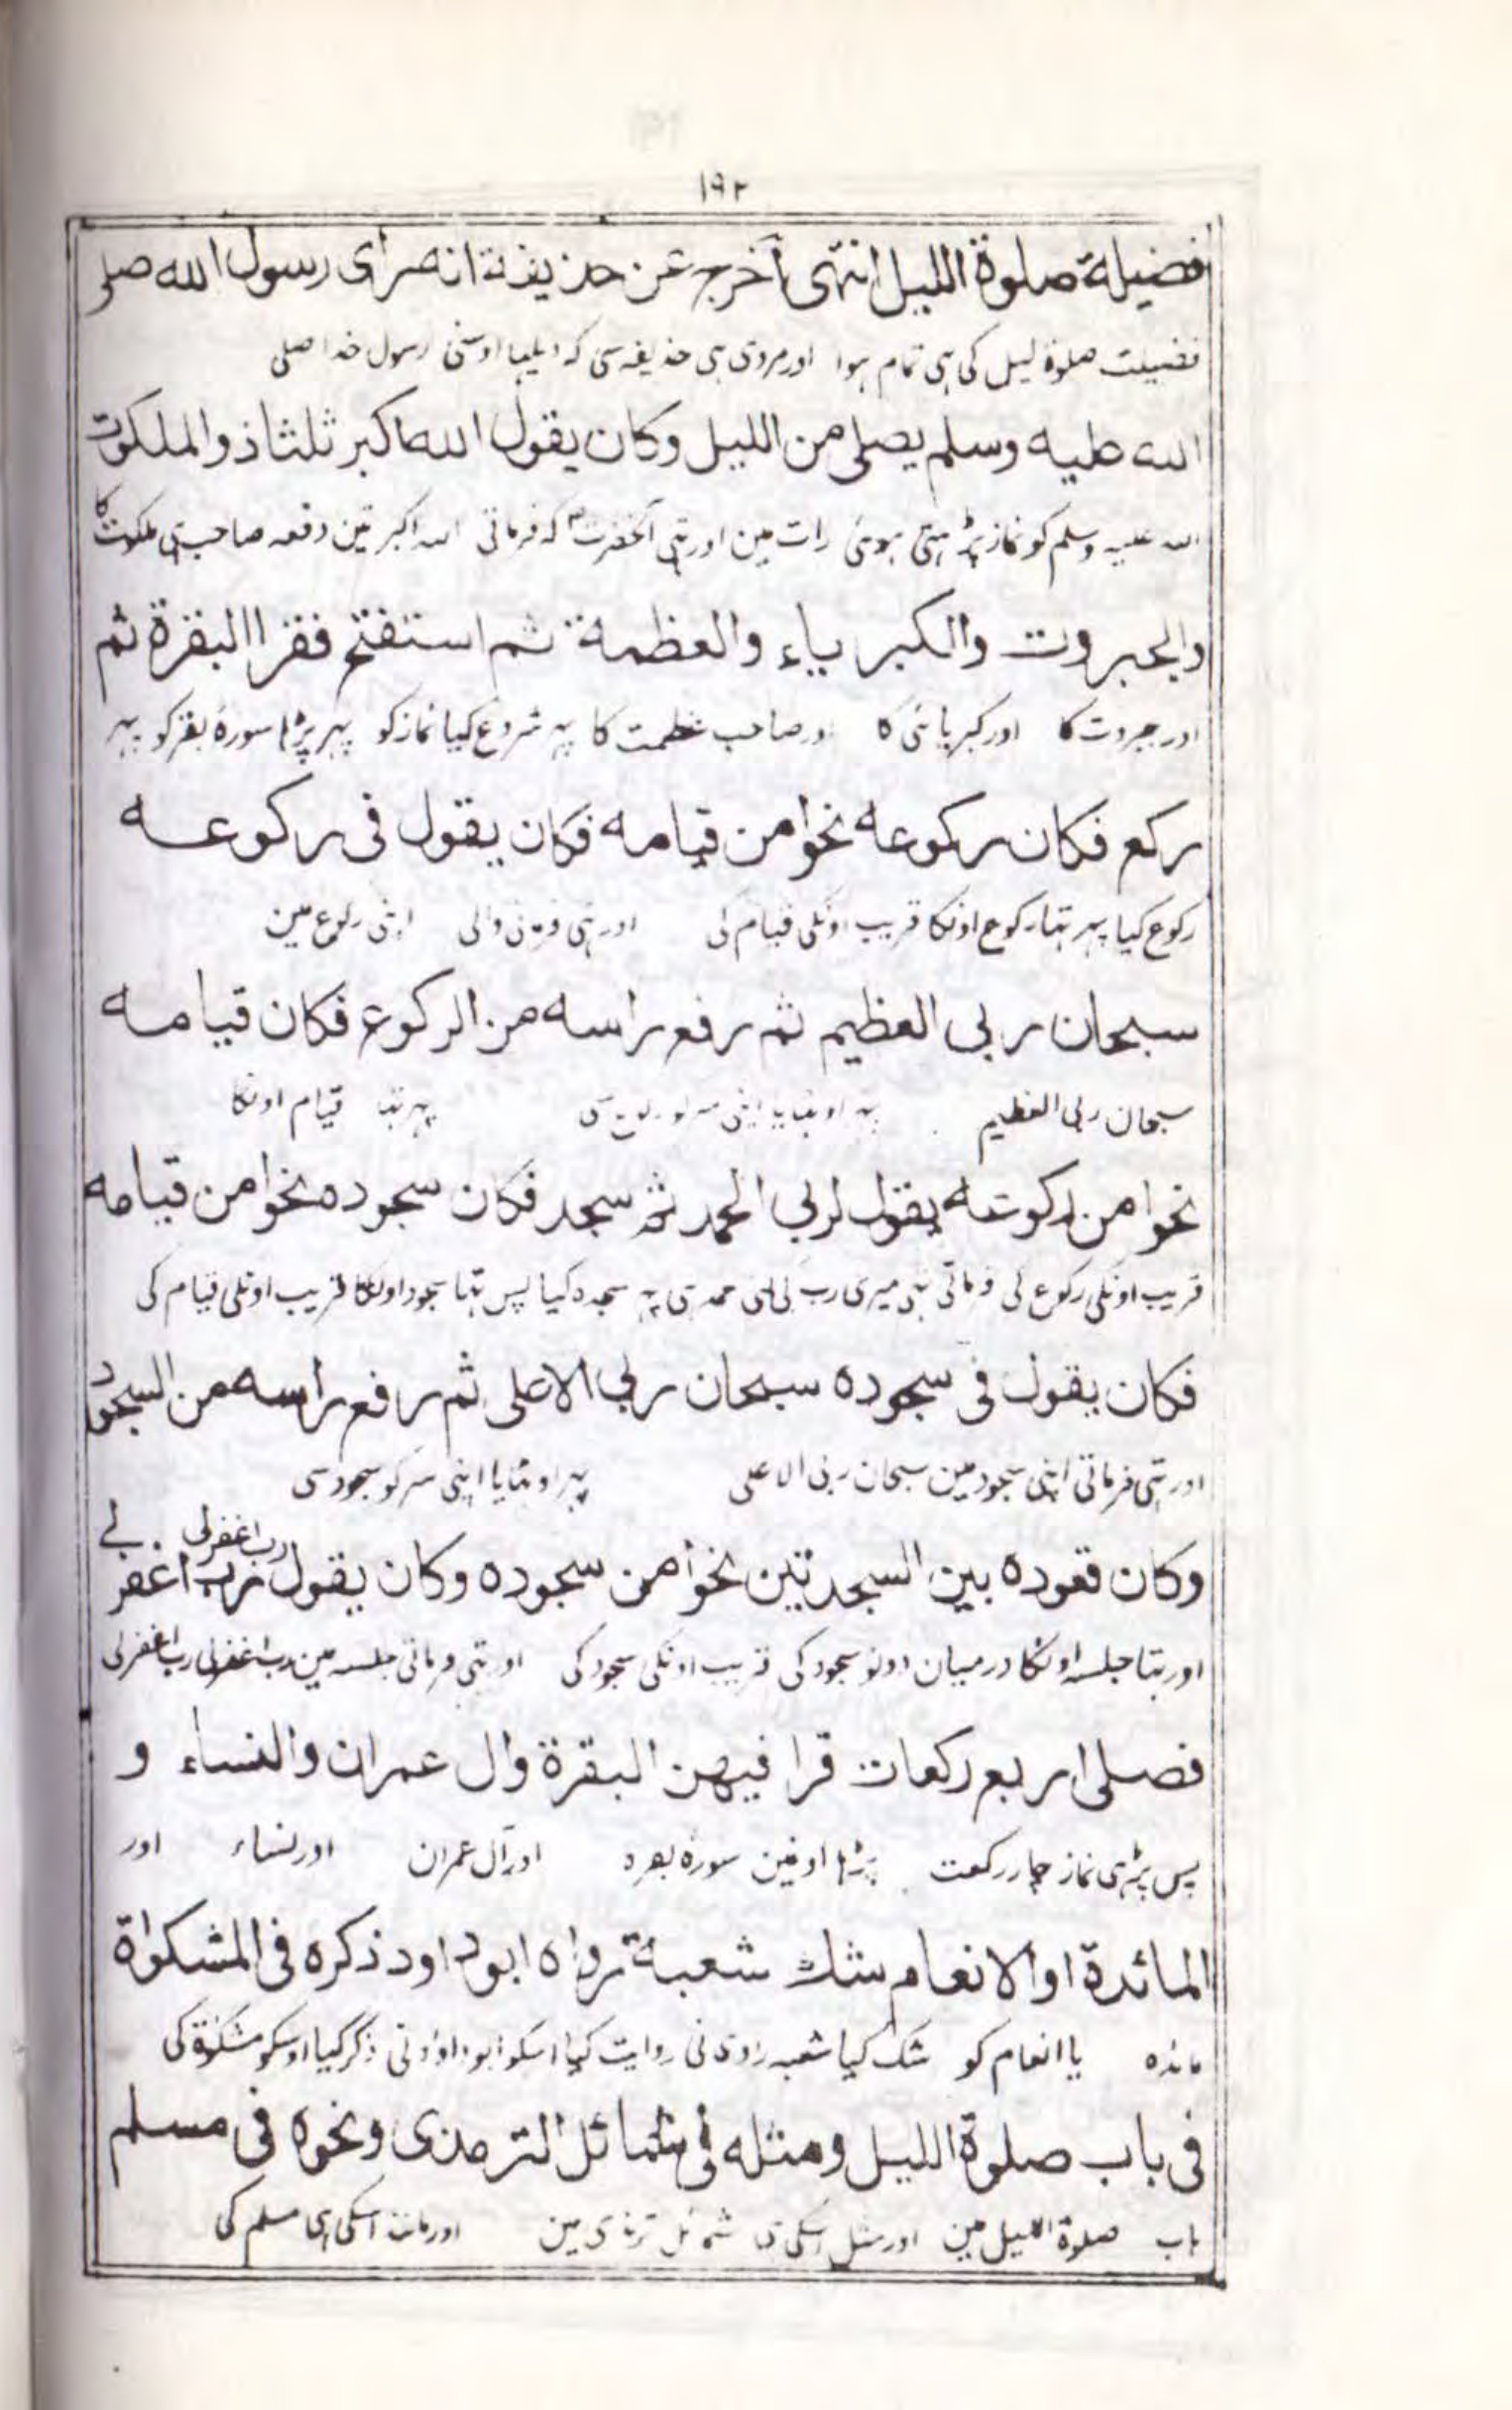 ۱۹۲
فضيلة صلوة الليل انتهى اخرج عن حذيفة انه راى رسول الله صلى
فضیلت صلوۃ لیل کی ہی تمام ہوا اور مروی ہی حذیفہ سی کہ دیکہا اوسنی رسول خدا صلی
الله عليه وسلم يصلى من الليل وكان يقول الله اكبر ثلثا ذو الملكوت
اللہ علیہ وسلم کو نماز پڑہتی ہوئی رات مین اور تہی آنحضرتؐ کہ فرماتی اللہ اکبر تین دفعہ صاحب ہی ملکوت کا
والجبروت والكبرياء والعظمة ثم استفتح فقرا البقرة ثم
اور جبروت کا اور کبریائی کا اور صاحب عظمت کا پہر شروع کیا نماز کو پہر پڑہا سورۂ بقر کو پہر
ركع فكان ركوعه نحوا من قيامه فكان يقول فى ركوعه
رکوع کیا پہر تہا رکوع اونکا قریب اونکی قیام کی اور تہی فرمانی والی اپنی رکوع مین
سبحان ربى العظيم ثم رفع راسه من الركوع فكان قيامه
سبحان ربی العظیم پہر اوٹہایا اپنی سر کو رکوع سی پہر تہا قیام اونکا
نحوا من ركوعه يقول لربي الحمد ثم سجد فكان سجوده نحوا من قيامه
قریب اونکی رکوع کی فرماتی تہی میری رب کی لئی حمد ہی پہر سجدہ کیا پس تہا سجود اونکا قریب اونکی قیام کی
فكان يقول فى سجوده سبحان ربي الاعلى ثم رفع راسه من السجود
اور تہی فرماتی اپنی سجود مین سبحان ربی الاعلی پہر اوٹہایا اپنی سر کو سجود سی
وكان قعوده بين السجدتين نحوا من سجوده وكان يقول رب اغفر لي رب اغفرلى
اور تہا جلسہ اونکا درمیان دونو سجود کی قریب اونکی سجود کی اور تہی فرماتی جلسہ مین رب اغفرلی رب اغفرلی
فصلى اربع ركعات قرا فيهن البقرة وال عمران والنساء و
پس پڑہی نماز چار رکعت پڑہا اونمین سورۂ بقرہ اور آل عمران اور نساء اور
المائدة او الانعام شك شعبة رواه ابو داود ذكره فى المشكواة
مائدہ یا انعام کو شک کیا شعبہ راوی نی روایت کیا اسکو ابوداؤد نی ذکر کیا اوسکو مشکوۃ کی
فى باب صلوة الليل ومثله فى شمائل الترمذى ونحوه فى مسلم
باب صلوۃ اللیل مین اور مثل اسکی ہی شمائل ترمذی مین اور مانند اسکی ہی مسلم کی